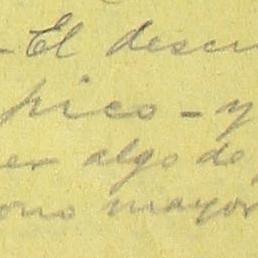 - El descu
pico - y
er algo de
ono mayor